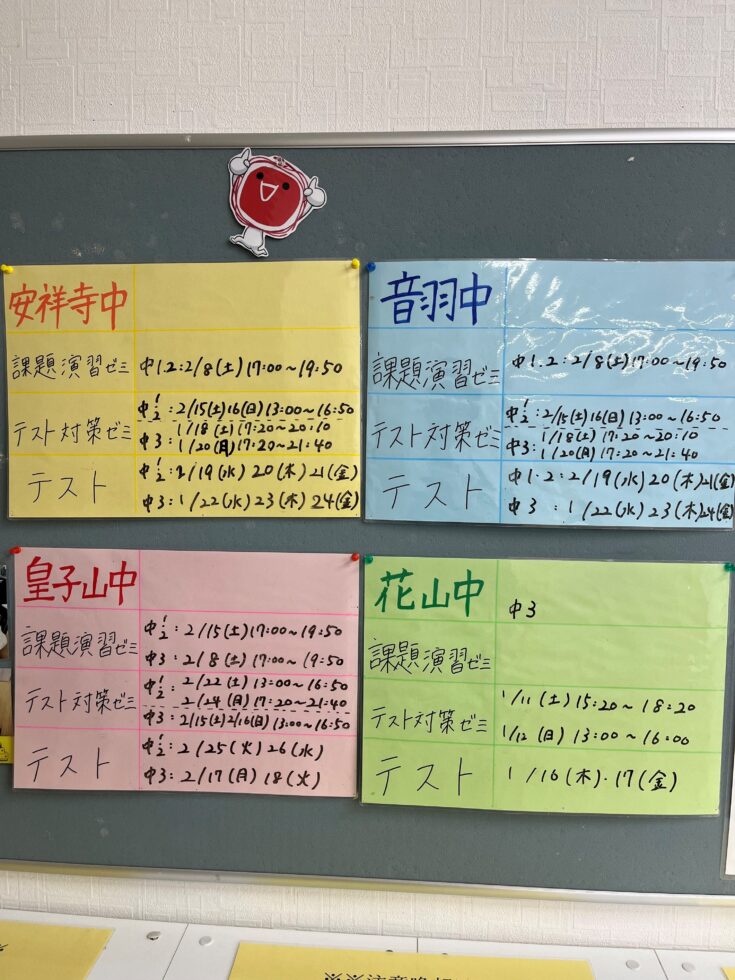 安祥寺中
課題演習ゼミ
中1.2:2/8(土)17:00~19:50
テスト対策ゼミ
中1/2:2/15(土)16(日)13:00~16:50
中3:1/18(土)17:20~20:10
1/20(月)17:20~21:40
テスト
中1/2:2/19(水)20(木)21(金)
中3:1/22(水)23(木)24(金)
音羽中
課題演習ゼミ
中1.2:2/8(土)17:00~19:50
テスト対策ゼミ
中1/2:2/15(土)16(日)13:00~16:50
中3:1/18(土)17:20~20:10
1/20(月)17:20~21:40
テスト
中1.2:2/19(水)20(木)21(金)
中3:1/22(水)23(木)24(金)
皇子山中
課題演習ゼミ
中1/2:2/15(土)17:00~19:50
中3:2/8(土)17:00~19:50
テスト対策ゼミ
中1/2:2/22(土)13:00~16:50
2/24(月)17:20~21:40
中3:2/15(土)2/16(日)13:00~16:50
テスト
中1/2:2/25(火)26(水)
中3:2/17(月)18(火)
花山中
中3
課題演習ゼミ
テスト対策ゼミ
1/11(土)15:20~18:20
1/12(日)13:00~16:00
テスト
1/16(木)・17(金)